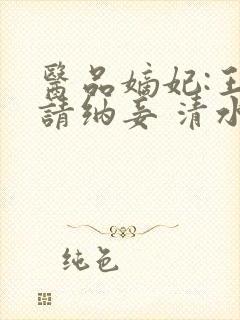 醫品嫡妃:王
請纳妾 清水
纯色